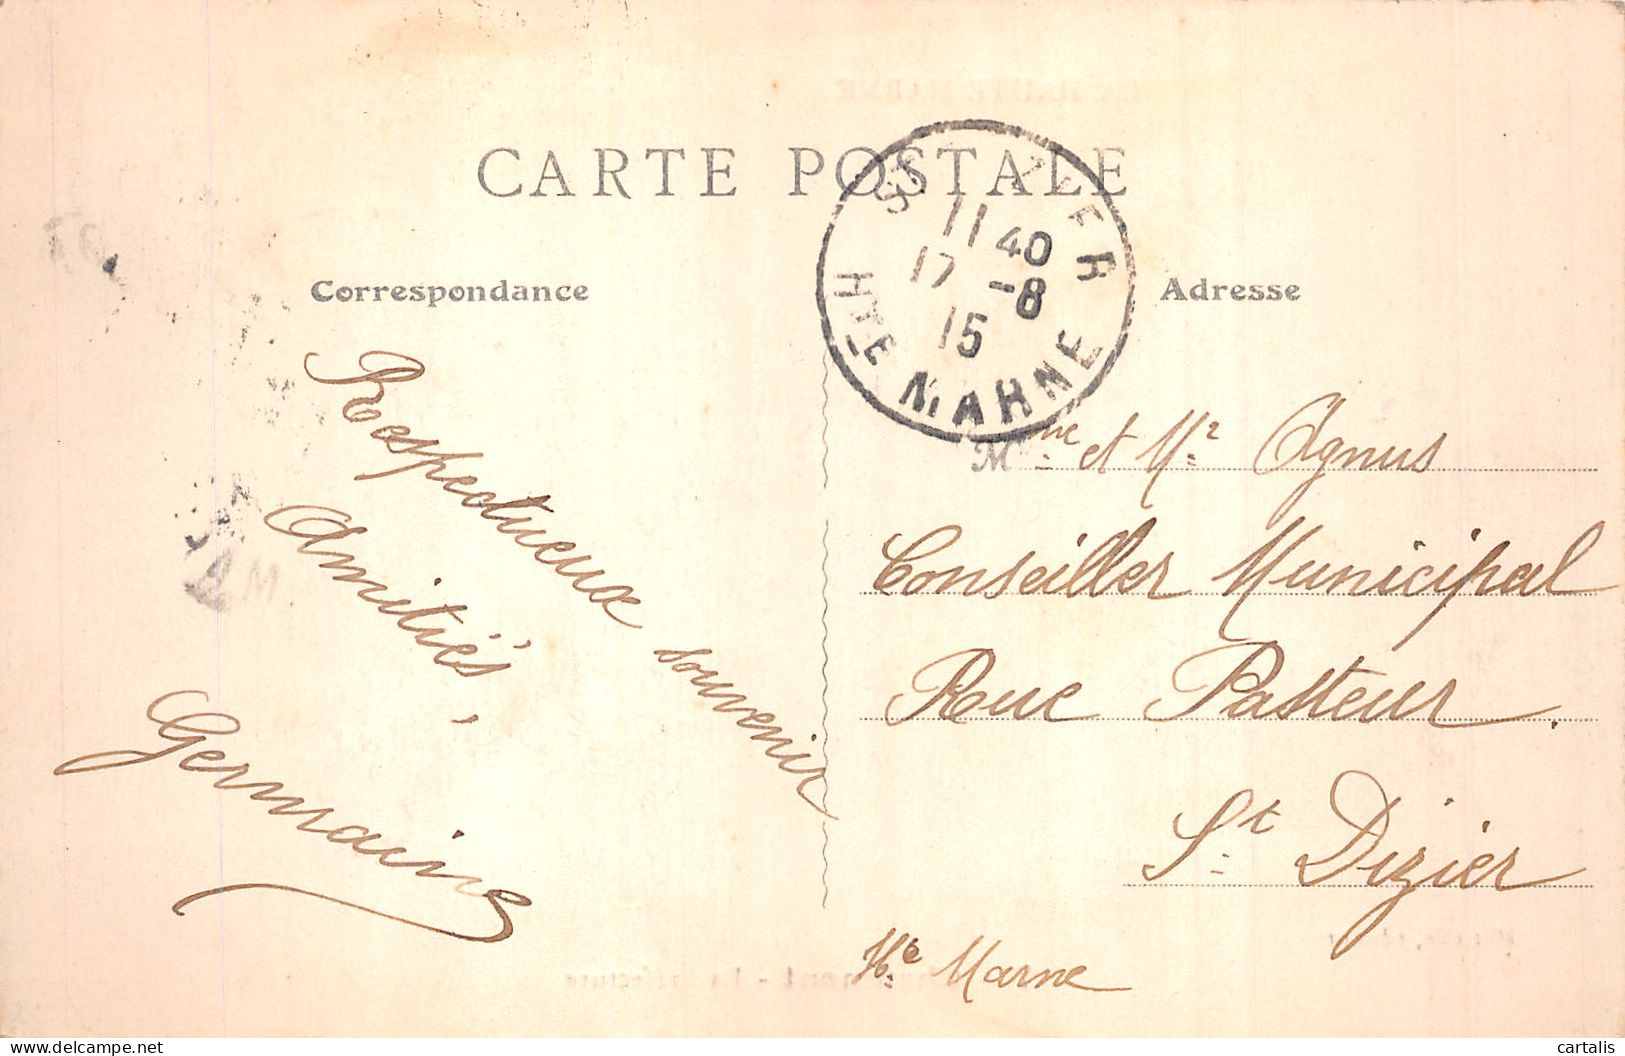 CARTE POSTALE
Correspondance
Adresse
ST ZIER
11 40
17 -8
15
HTE MARNE
Respectueux souvenir
Amitiés,
Germaine
Mme et Mr Agnus
Conseiller Municipal
Rue Pasteur.
St Dizier
Hte Marne
delcampe.net
cartalis